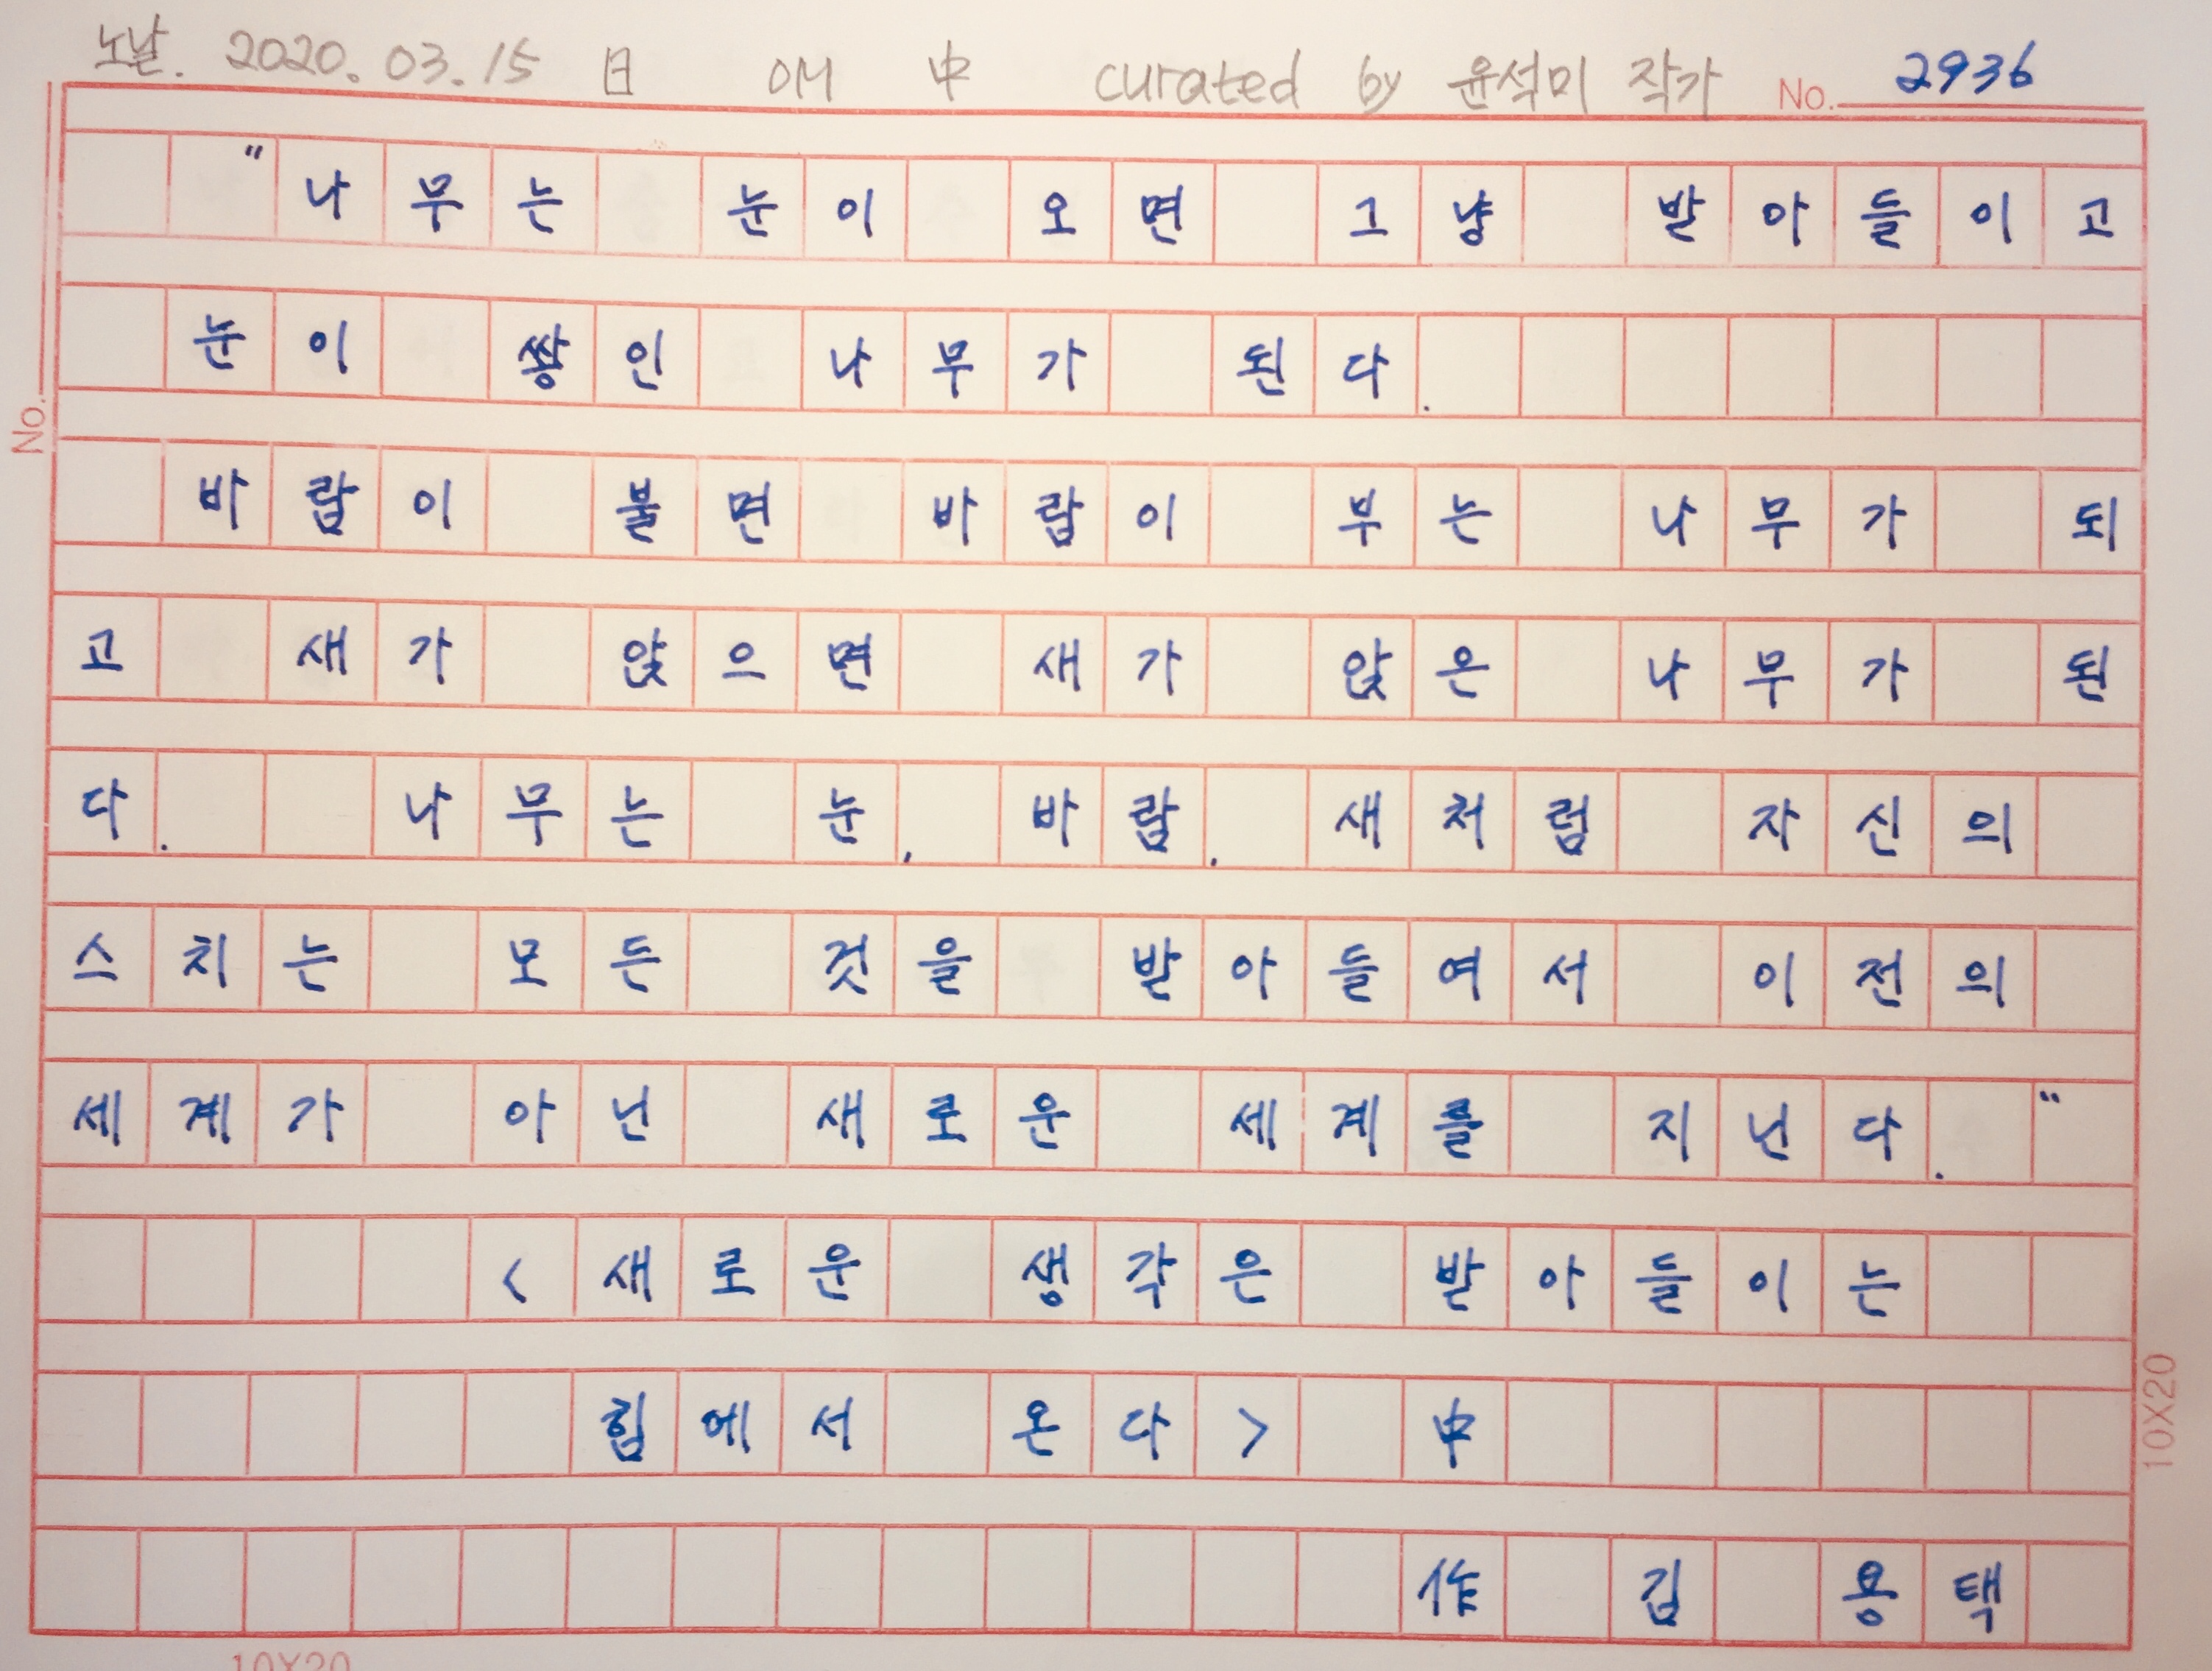 노날. 2020. 03. 15 日 에 中 curated by 윤석미 작가 No. 2936
"나무는 눈이 오면 그냥 받아들이고
눈이 쌓인 나무가 된다.
바람이 불면 바람이 부는 나무가 되
고 새가 앉으면 새가 앉은 나무가 된
다. 나무는 눈, 바람, 새처럼 자신의
스치는 모든 것을 받아들여서 이전의
세계가 아닌 새로운 세계를 지닌다."
<새로운 생각은 받아들이는
힘에서 온다> 中
作 김 용택
No.
10X20
10X20